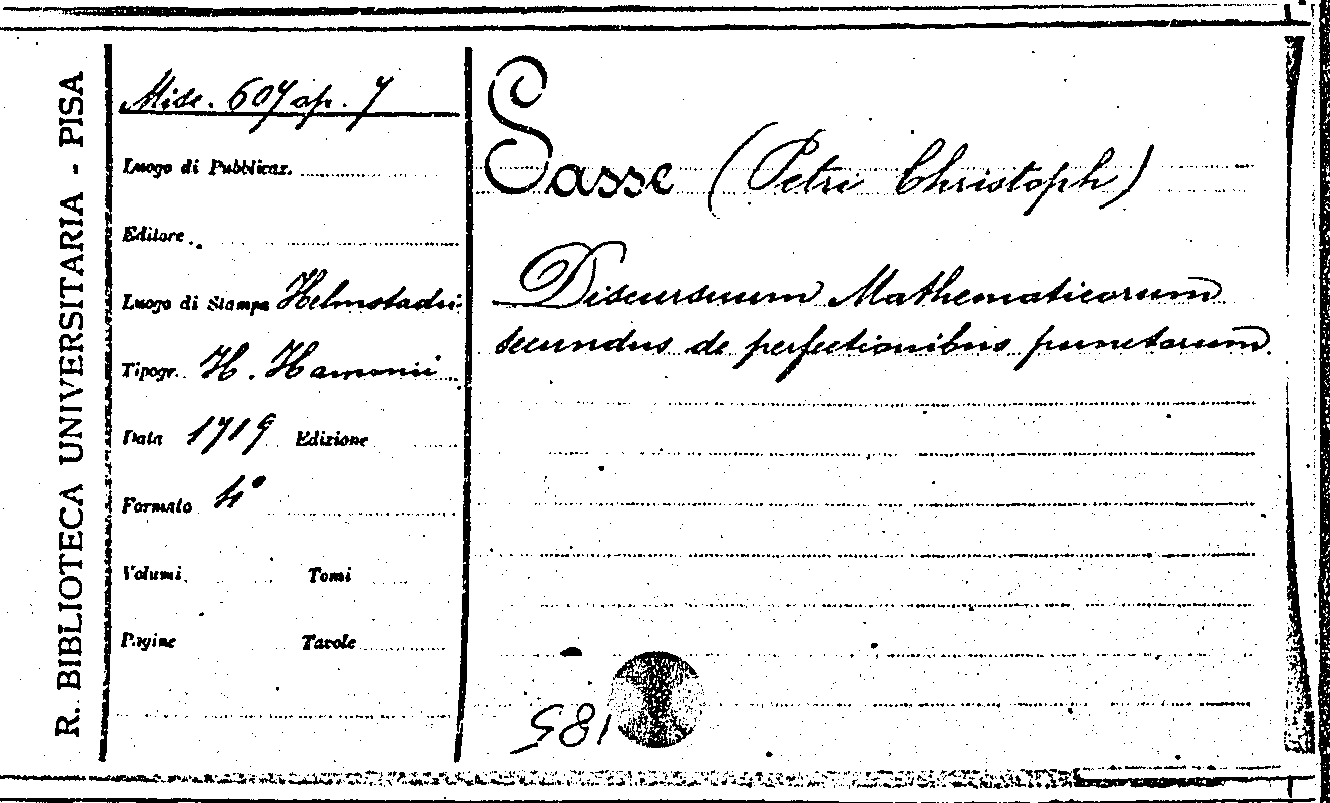 R. BIBLIOTECA UNIVERSITARIA - PISA
Misc. 607 op. 7
Luogo di Pubblicaz.
Editore
Luogo di Stampa Helmstadii
Tipogr. H. Hamonii
Data 1719 Edizione
Formato 4°
Volumi Tomi
Pagine Tavole
Sasse (Petri Christoph)
Discursuum Mathematicorum
secundus de perfectionibus punctorum